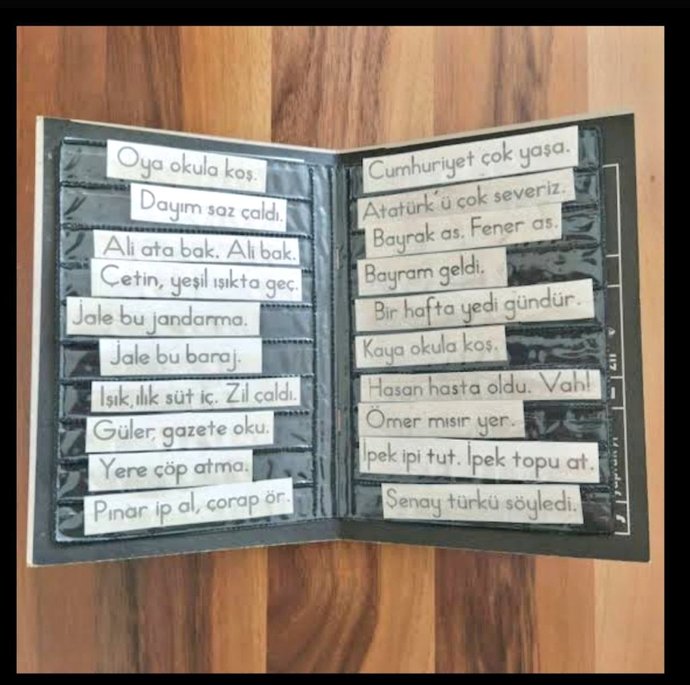 Oya okula koş.
Dayım saz çaldı.
Ali ata bak. Ali bak.
Çetin, yeşil ışıkta geç.
Jale bu jandarma.
Jale bu baraj.
Işık,ılık süt iç. Zil çaldı.
Güler, gazete oku.
Yere çöp atma.
Pınar ip al, çorap ör.
Cumhuriyet çok yaşa.
Atatürk'ü çok severiz.
Bayrak as. Fener as.
Bayram geldi.
Bir hafta yedi gündür.
Kaya okula koş.
Hasan hasta oldu. Vah!
Ömer mısır yer.
İpek ipi tut. İpek topu at.
Şenay türkü söyledi.